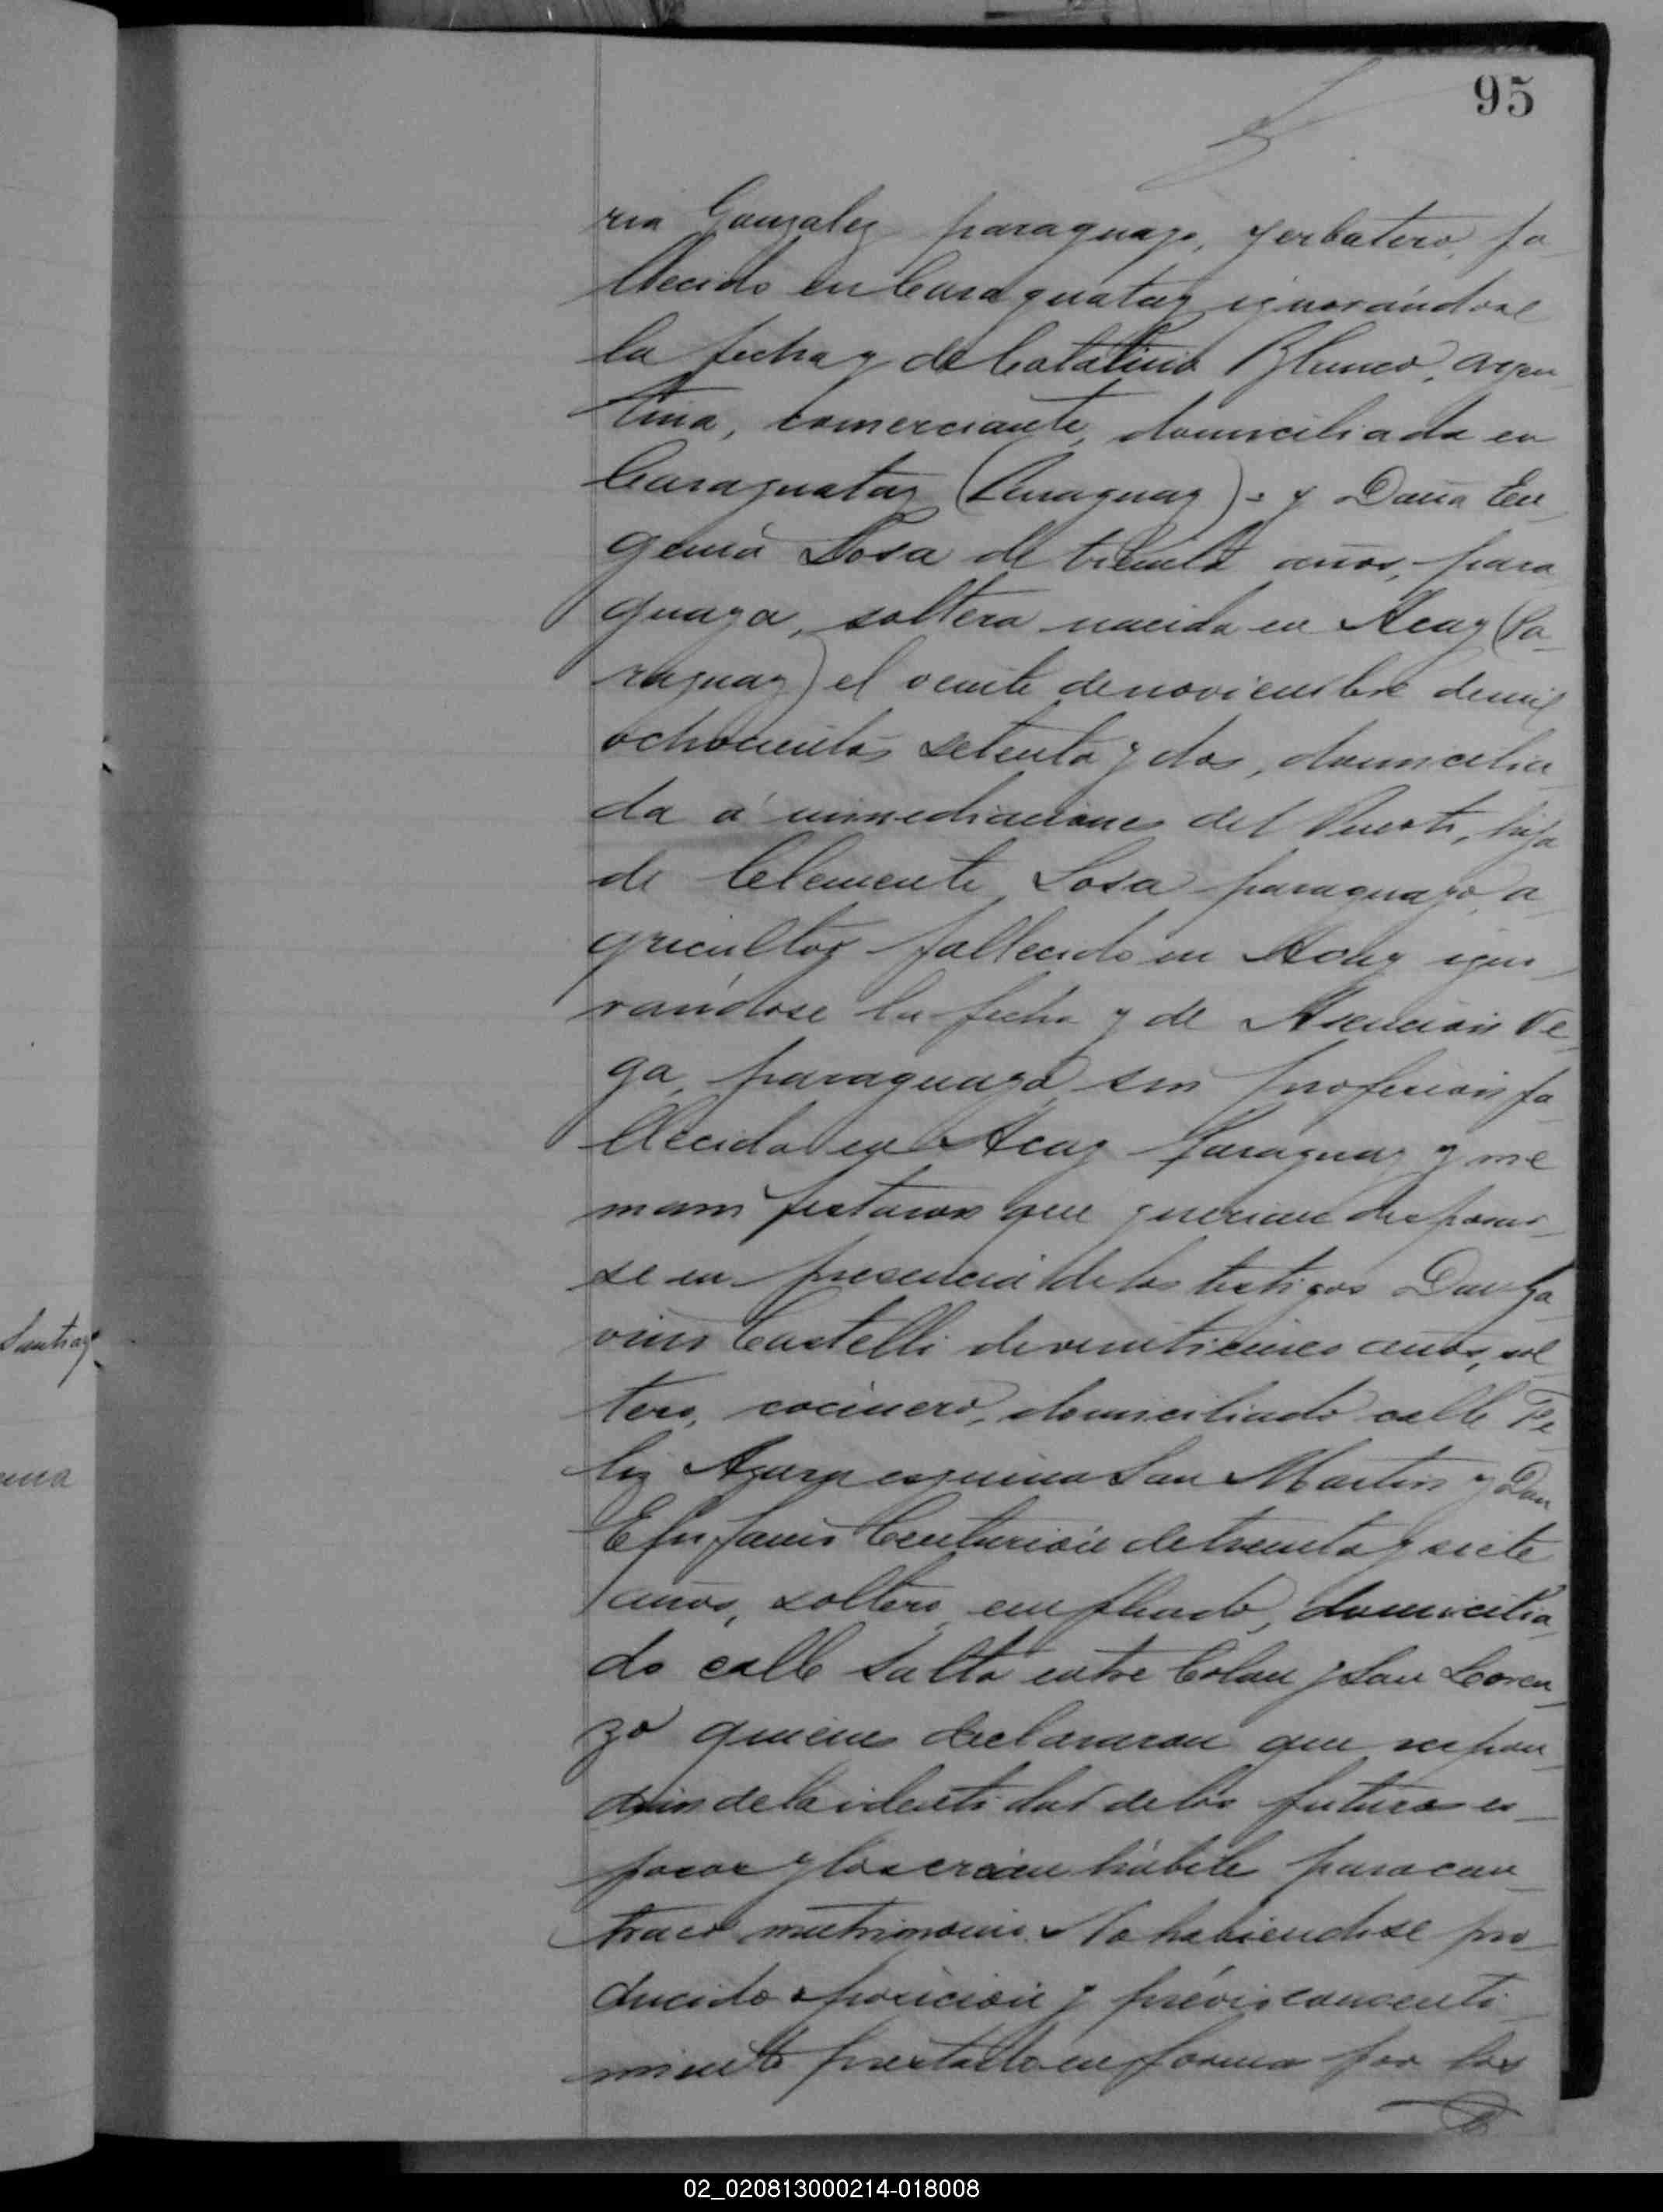 95
ria Gonzalez paraguayo, yerbatero, fa
llecido en Caraguatay ignorándose
la fecha y de Catalina Blanco, argen
tina, comerciante, domiciliada en
Caraguatay (Paraguay) = y Doña Eu
genia Sosa de treinta años, para
guaya, soltera nacida en Acay (Pa
raguay) el veinte de noviembre de mil
ochocientos setenta y dos, domicilia
da á inmediaciones del Puerto, hija
de Clemente Sosa paraguayo, a
gricultor fallecido en Acay igno
rándose la fecha y de Asención Ve
ga, paraguaya, sin profesión fa
llecida en Acay Paraguay y me
manifestaron que querian desposar
se en presencia de los testigos Don Ga
vino Castelli de veinticinco años, sol
tero, cocinero, domiciliado calle Fe
liz Azara esquina San Martin y Don
Epifanio Centurión de treinta y siete
años, soltero, empleado, domicilia
do calle Salta entre Colon y San Loren
zo quienes declararon que respon
dian de la identidad de los futuros es
posos y los creian hábiles para con
traer matrimonio. No habiendose pro
ducido oposición y prévio consenti
miento prestado en forma por los
Santiago
02_020813000214-018008